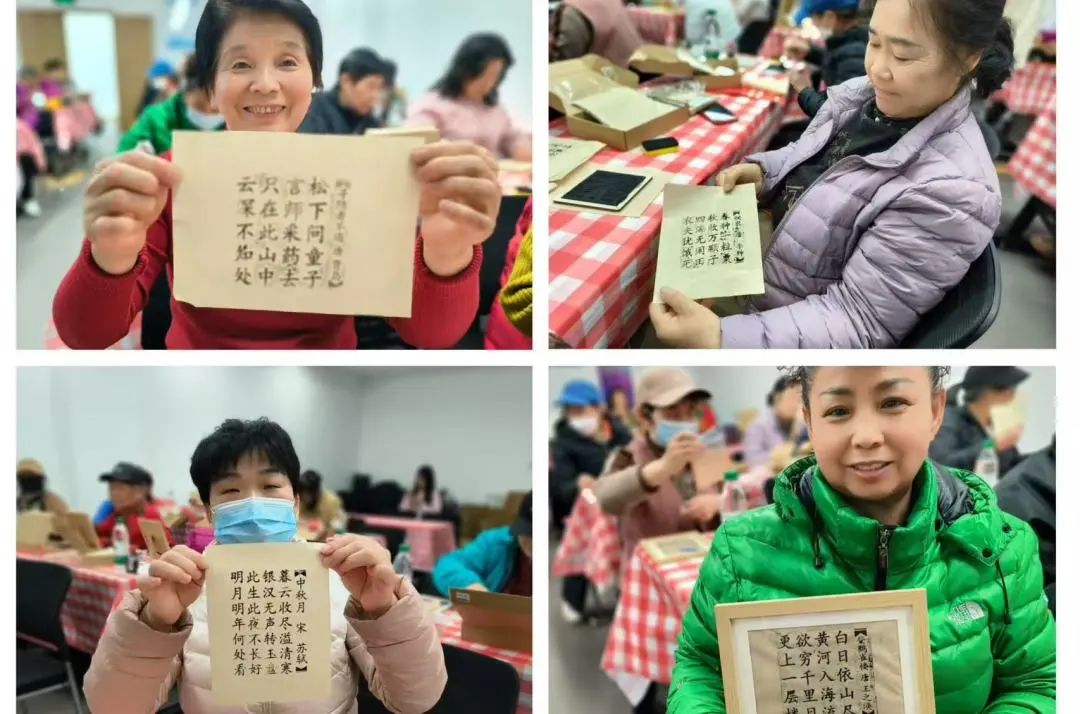 松下问童子
言师采药去
只在此山中
云深不知处
春种一粒粟
秋收万颗子
四海无闲田
农夫犹饿死
【中秋月 宋 苏轼】
暮云收尽溢清寒
银汉无声转玉盘
此生此夜不长好
明月明年何处看
登鹳雀楼 唐 王之涣
白日依山尽
黄河入海流
欲穷千里目
更上一层楼